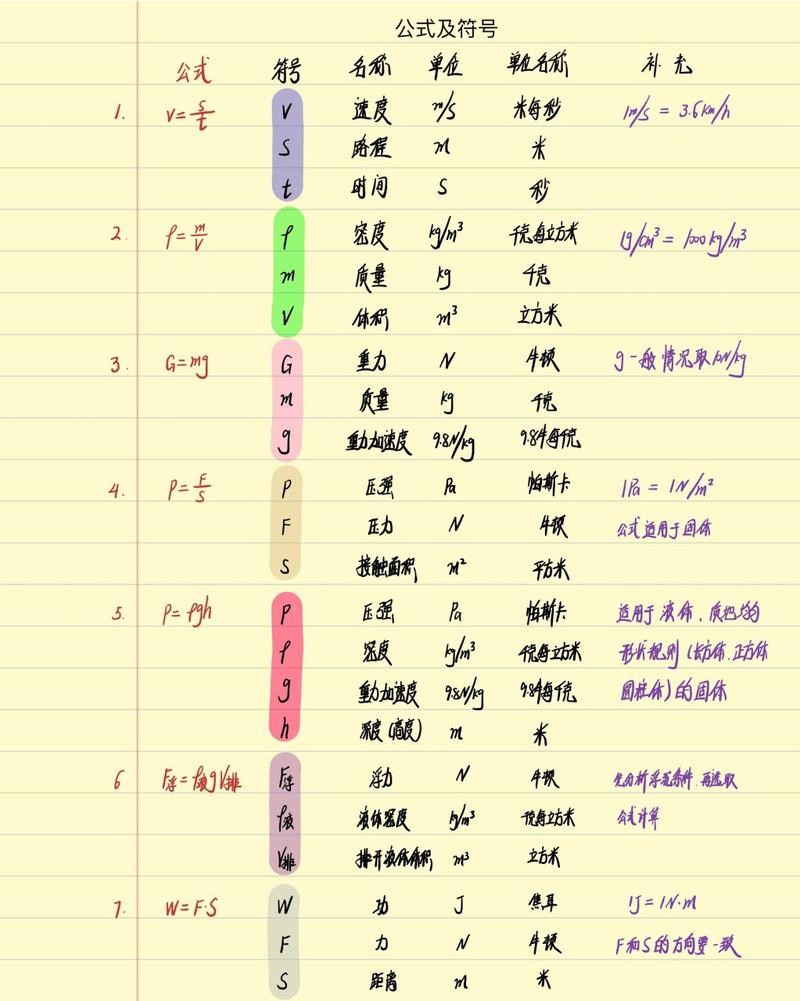 公式及符号
公式 符号 名称 单位 单位名称 补充
1. v=s/t V 速度 m/s 米每秒 1m/s = 3.6km/h
S 路程 m 米
t 时间 S 秒
2. ρ=m/V ρ 密度 kg/m³ 千克每立方米 1g/cm³ = 1000kg/m³
m 质量 kg 千克
V 体积 m³ 立方米
3. G=mg G 重力 N 牛顿 g一般情况取10N/kg
m 质量 kg 千克
g 重力加速度 9.8N/kg 9.8牛每千克
4. P=F/S P 压强 Pa 帕斯卡 1Pa = 1N/m²
F 压力 N 牛顿 公式适用于固体
S 接触面积 m² 平方米
5. P=ρgh P 压强 Pa 帕斯卡 适用于液体、质地均匀
ρ 密度 kg/m³ 千克每立方米 形状规则(长方体.正方体
g 重力加速度 9.8N/kg 9.8牛每千克 圆柱体)的固体
h 深度(高度) m 米
6 F浮=ρ液gV排 F浮 浮力 N 牛顿 先分析浮沉条件.再选取
ρ液 液体密度 kg/m³ 千克每立方米 公式计算
V排 排开液体体积 m³ 立方米
7. W=F·S W 功 J 焦耳 1J=1N·m
F 力 N 牛顿 F和S的方向要一致
S 距离 m 米